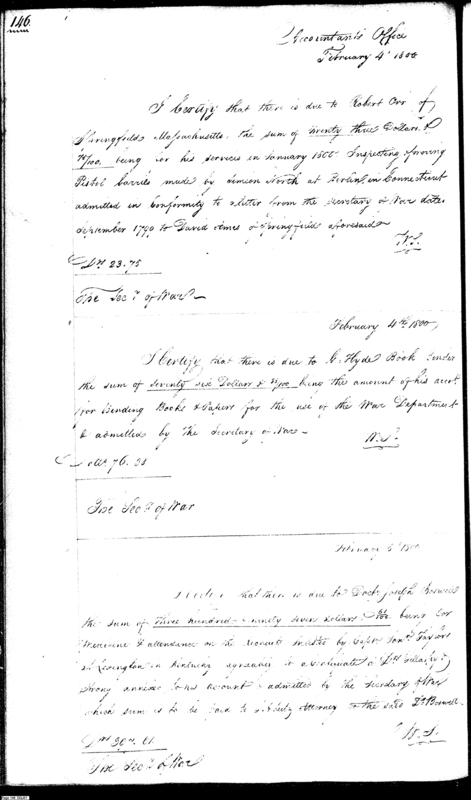 146.
Accountants Office
February 4th 1800
I Certify that there is due to Robert Orr of
Springfield Massachusetts, the sum of twenty three Dollars &
75/100, being for his services in January 1800 Inspecting & proving
Pistol barrels made by Simeon North at Berlin, in Connecticut
admitted in conformity to a letter from the Secretary of War dated
September 1799 to David Ames of Springfield aforesaid
W.S.
Drs 23.75
The Secy of War
February 4th 1800,
I Certify that there is due to G. Hyde Book binder
the sum of seventy six Dollars & being the amount of his acct.
for Binding Books & Papers for the use of the War Department
& admitted by the Secretary of War
W.S.
76.
The Secy of War
February 5th 1800
I Certify that there is due to Doctr Joseph Boswell
the sum of three hundred & ninety seven dollars 61/100 being for
Medicine & attendance on the Recruits Inlisted by Captn Taylor
at Lexington in Kentucky agreeably to
Strong annexed to his account & admitted by the Secretary of War
which sum is to be paid to Attorney to the said Dr Boswell.
W.S.
Drs 397.61
The Secy of War